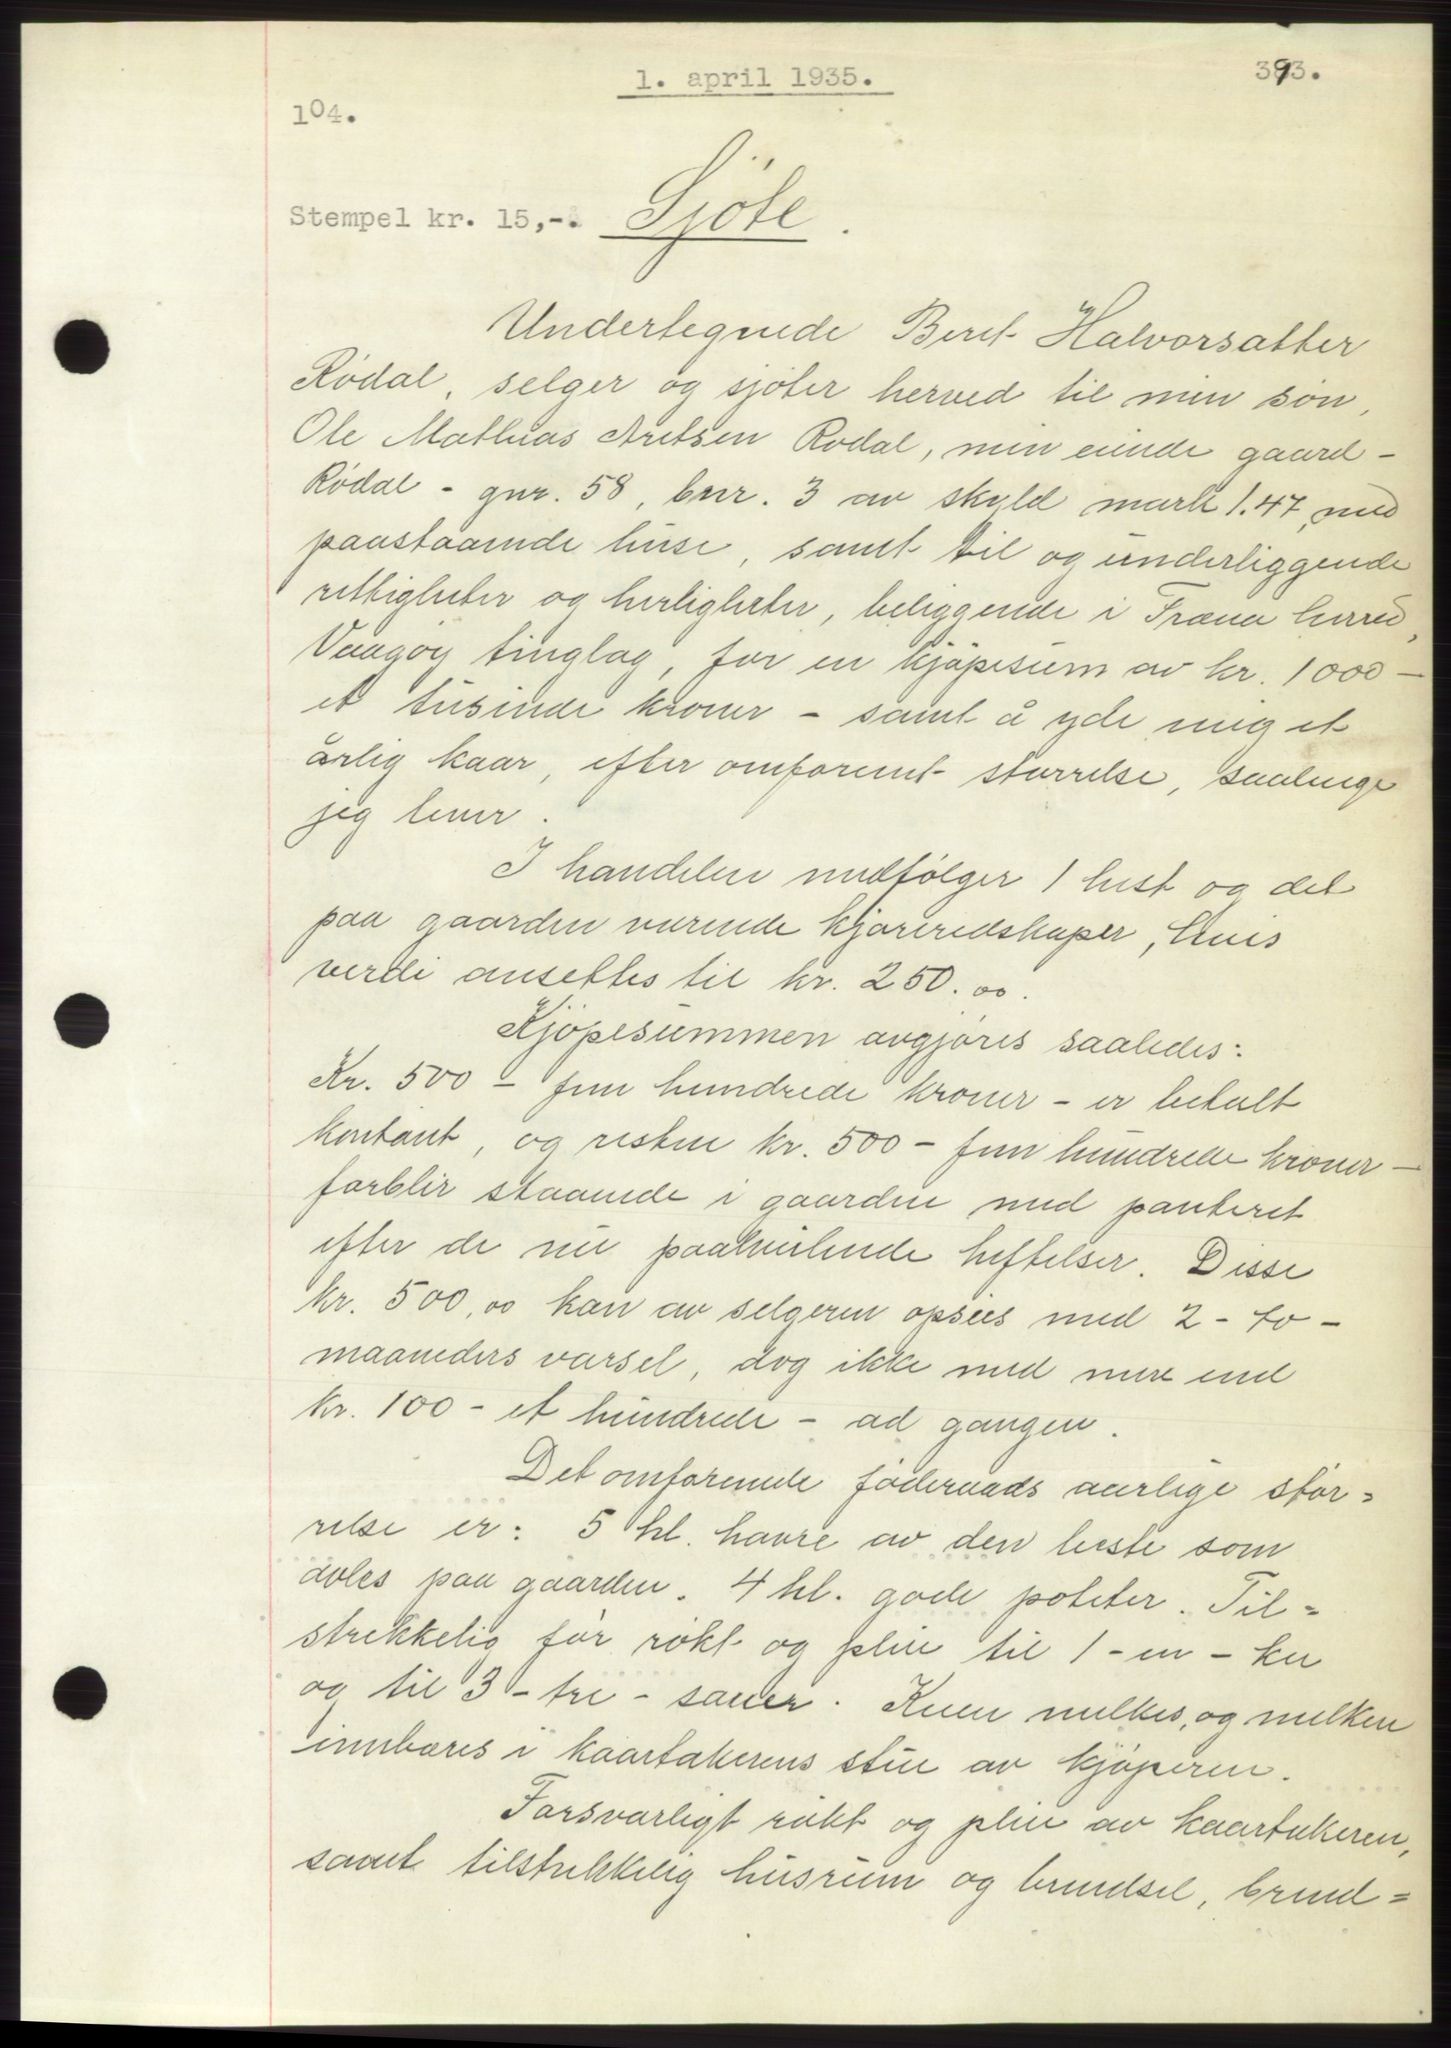 1. april 1935.
393.
104.
Stempel kr. 15,-. Sjöte.
Undertegnede Beret Halvorsatter
Rödal, selger og sjöter herved til min sön,
Ole Mathias Aretsen Rödal, min eiende gaard -
Rödal - gnr. 58, bnr. 3 av skyld mark 1.47, med
paastaaende huse, samt til og underliggende
rettigheter og herligheter, beliggende i Fræna herred,
Vaagöy tinglag, for en kjöpesum av kr. 1000 -
et tusinde kroner - samt å yde mig et
årlig kaar, efter omforent störrelse, saalenge
jeg lever.
I handelen medfölger 1 hest og det
paa gaarden værende kjöreredskaper, hvis
verdi ansettes til kr. 250.00.
Kjöpesummen avgjöres saaledes:
Kr. 500 - fem hundrede kroner - er betalt
kontant, og resten kr. 500 - fem hundrede kroner -
forblir staaende i gaarden med panteret
efter de nu paahvilende heftelser. Disse
kr. 500,00 kan av selgeren opsies med 2 - to -
maaneders varsel, dog ikke med mere end
kr. 100 - et hundrede - ad gangen.
Det omforenede föderaads aarlige stör=
relse er: 5 hl. havre av den beste som
avles paa gaarden. 4 hl. gode poteter. Til=
strekkelig för rökt og pleie til 1 - en - ku
og til 3 - tre - sauer. Kuen melkes, og melken
innbæres i kaartakerens stue av kjöperen.
Forsvarligt rökt og pleie av kaartakeren,
samt tilstrekkelig husrum og brendsel, brend=